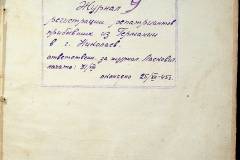 Журнал
регистрации репатриантов
прибывших из Германии
в г. Николаев
ответствен. за журнал
начато
окончено 25/XII-45г.